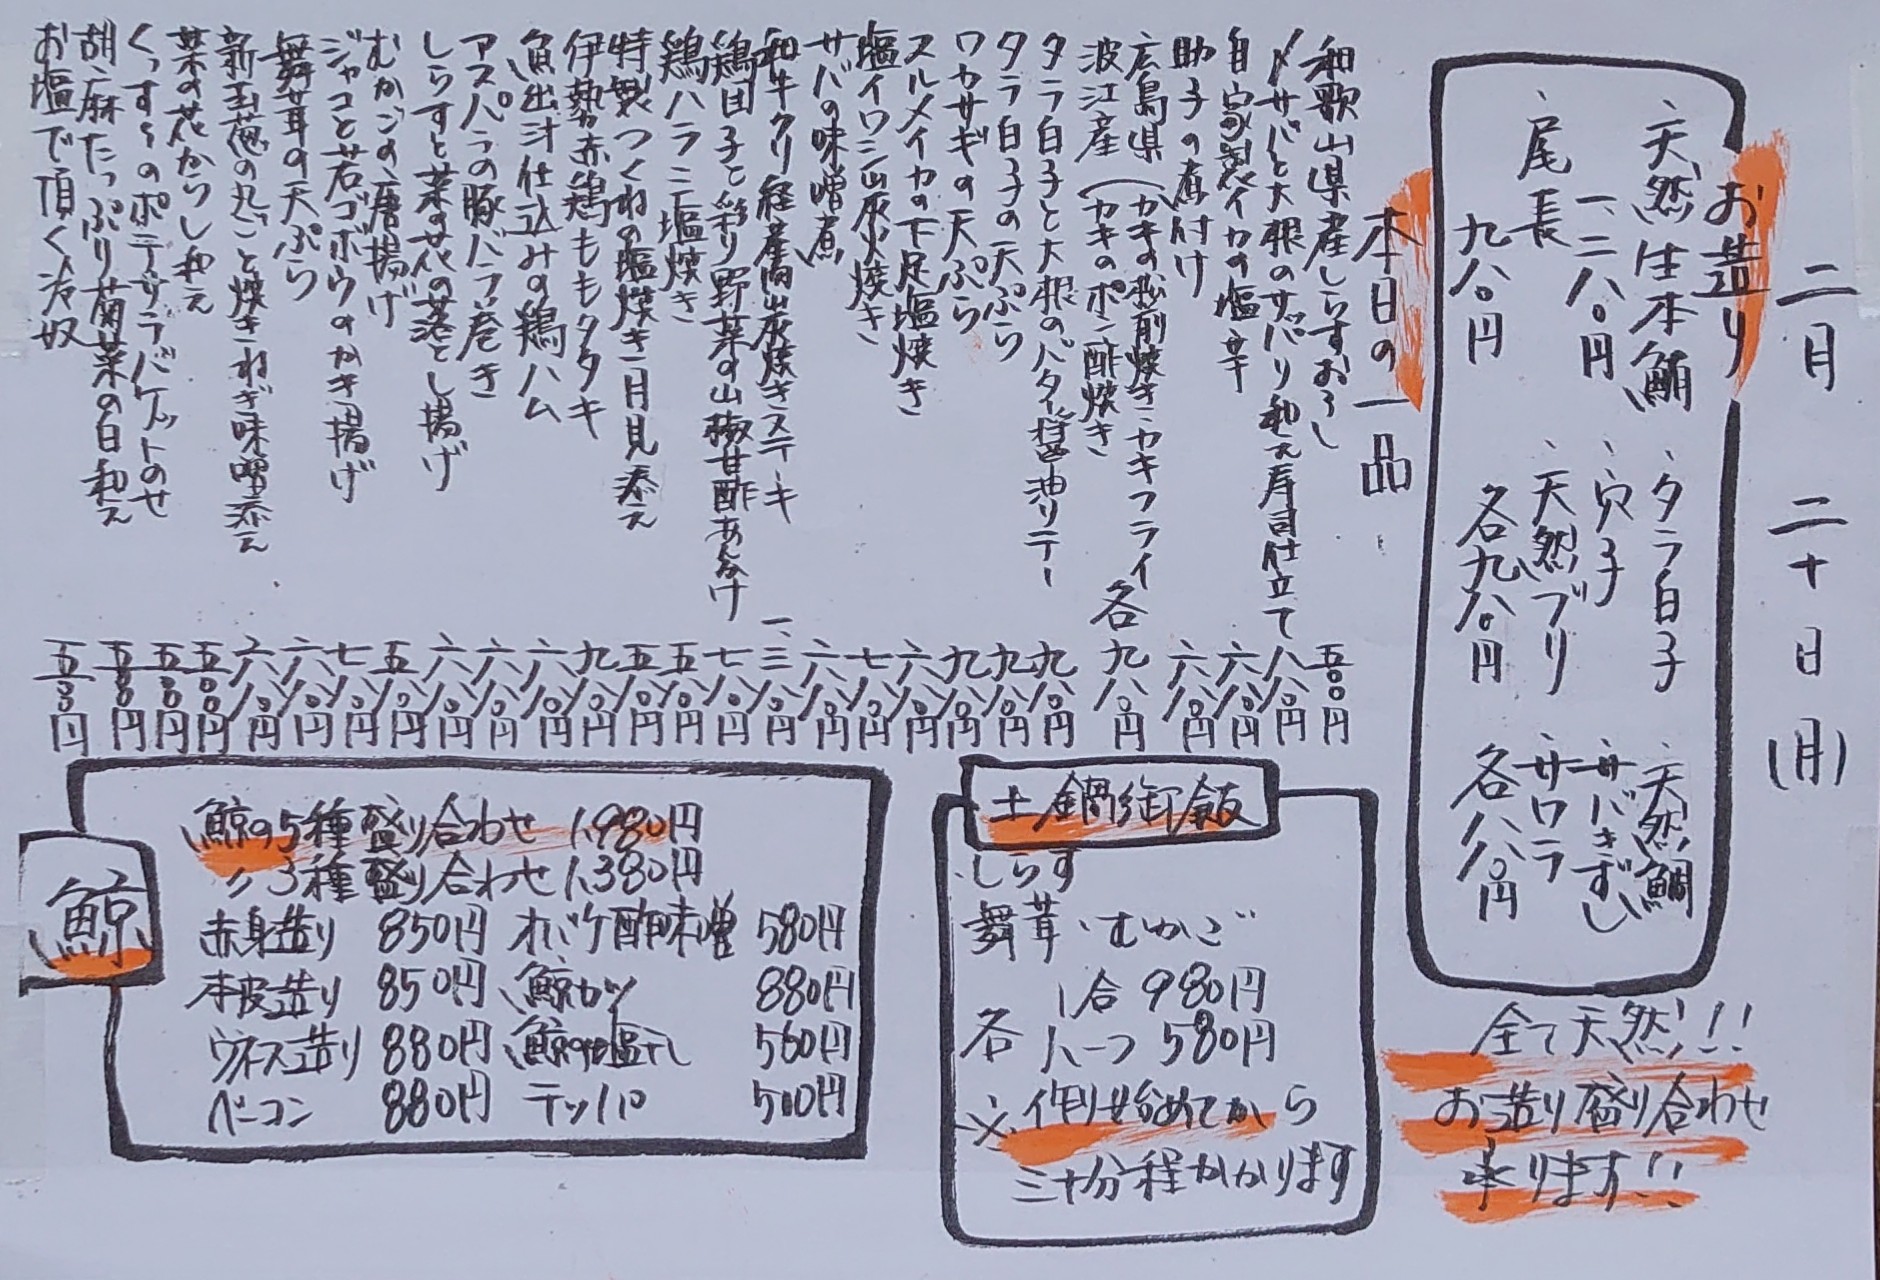 二月 二十日(月)
お造り
、天然生本鮪
一、二八〇円
、尾長
九八〇円
、タラ白子
、穴子
、天然ブリ
各九八〇円
、天然鯛
、サバきずし
、サワラ
各八八〇円
全て天然!!
お造り盛り合わせ
承ります!!
本日の一品
和歌山県産しらすおろし 五〇〇円
〆サバと大根のサッパリ和え寿司仕立て 八八〇円
自家製イカの塩辛 六八〇円
助子の煮付け 六八〇円
広島県(カキの松前焼き・カキフライ
波江産(カキのポン酢焼き 各九八〇円
タラ白子と大根のバター醤油ソテー 九八〇円
タラ白子の天ぷら 九八〇円
ワカサギの天ぷら 九八〇円
スルメイカの下足塩焼き 六八〇円
塩イワシ炭火焼き 七八〇円
サバの味噌煮 六八〇円
和牛クリ経産炭焼きステーキ 一、三八〇円
鶏団子と彩り野菜の山椒甘酢あんかけ 七八〇円
鶏ハラミ塩焼き 五八〇円
特製つくねの塩焼き月見添え 五八〇円
伊勢赤鶏ももタタキ 九八〇円
魚出汁仕込みの鶏ハム 六八〇円
アスパラの豚バラ巻き 六八〇円
しらすと菜の花の落とし揚げ 六八〇円
むかごの唐揚げ 五八〇円
ジャコと若ゴボウのかき揚げ 七八〇円
舞茸の天ぷら 六八〇円
新玉葱の丸ごと焼きねぎ味噌添え 六八〇円
菜の花からし和え 五〇〇円
くんすぅのポテサラバケットのせ 五〇〇円
胡麻たっぷり菊菜の白和え 五〇〇円
お塩で頂く冷奴 五〇〇円
土鍋御飯
、しらす
舞茸、むかご
各 1合 980円
ハーフ 580円
※作り始めてから
三十分程かかります
鯨
鯨の5種盛り合わせ 1,980円
〃3種盛り合わせ 1,380円
赤身造り 850円 オバケ酢味噌 580円
本皮造り 850円 鯨カツ 880円
ウネス造り 880円 鯨の塩干し 560円
ベーコン 880円 テッパ 500円